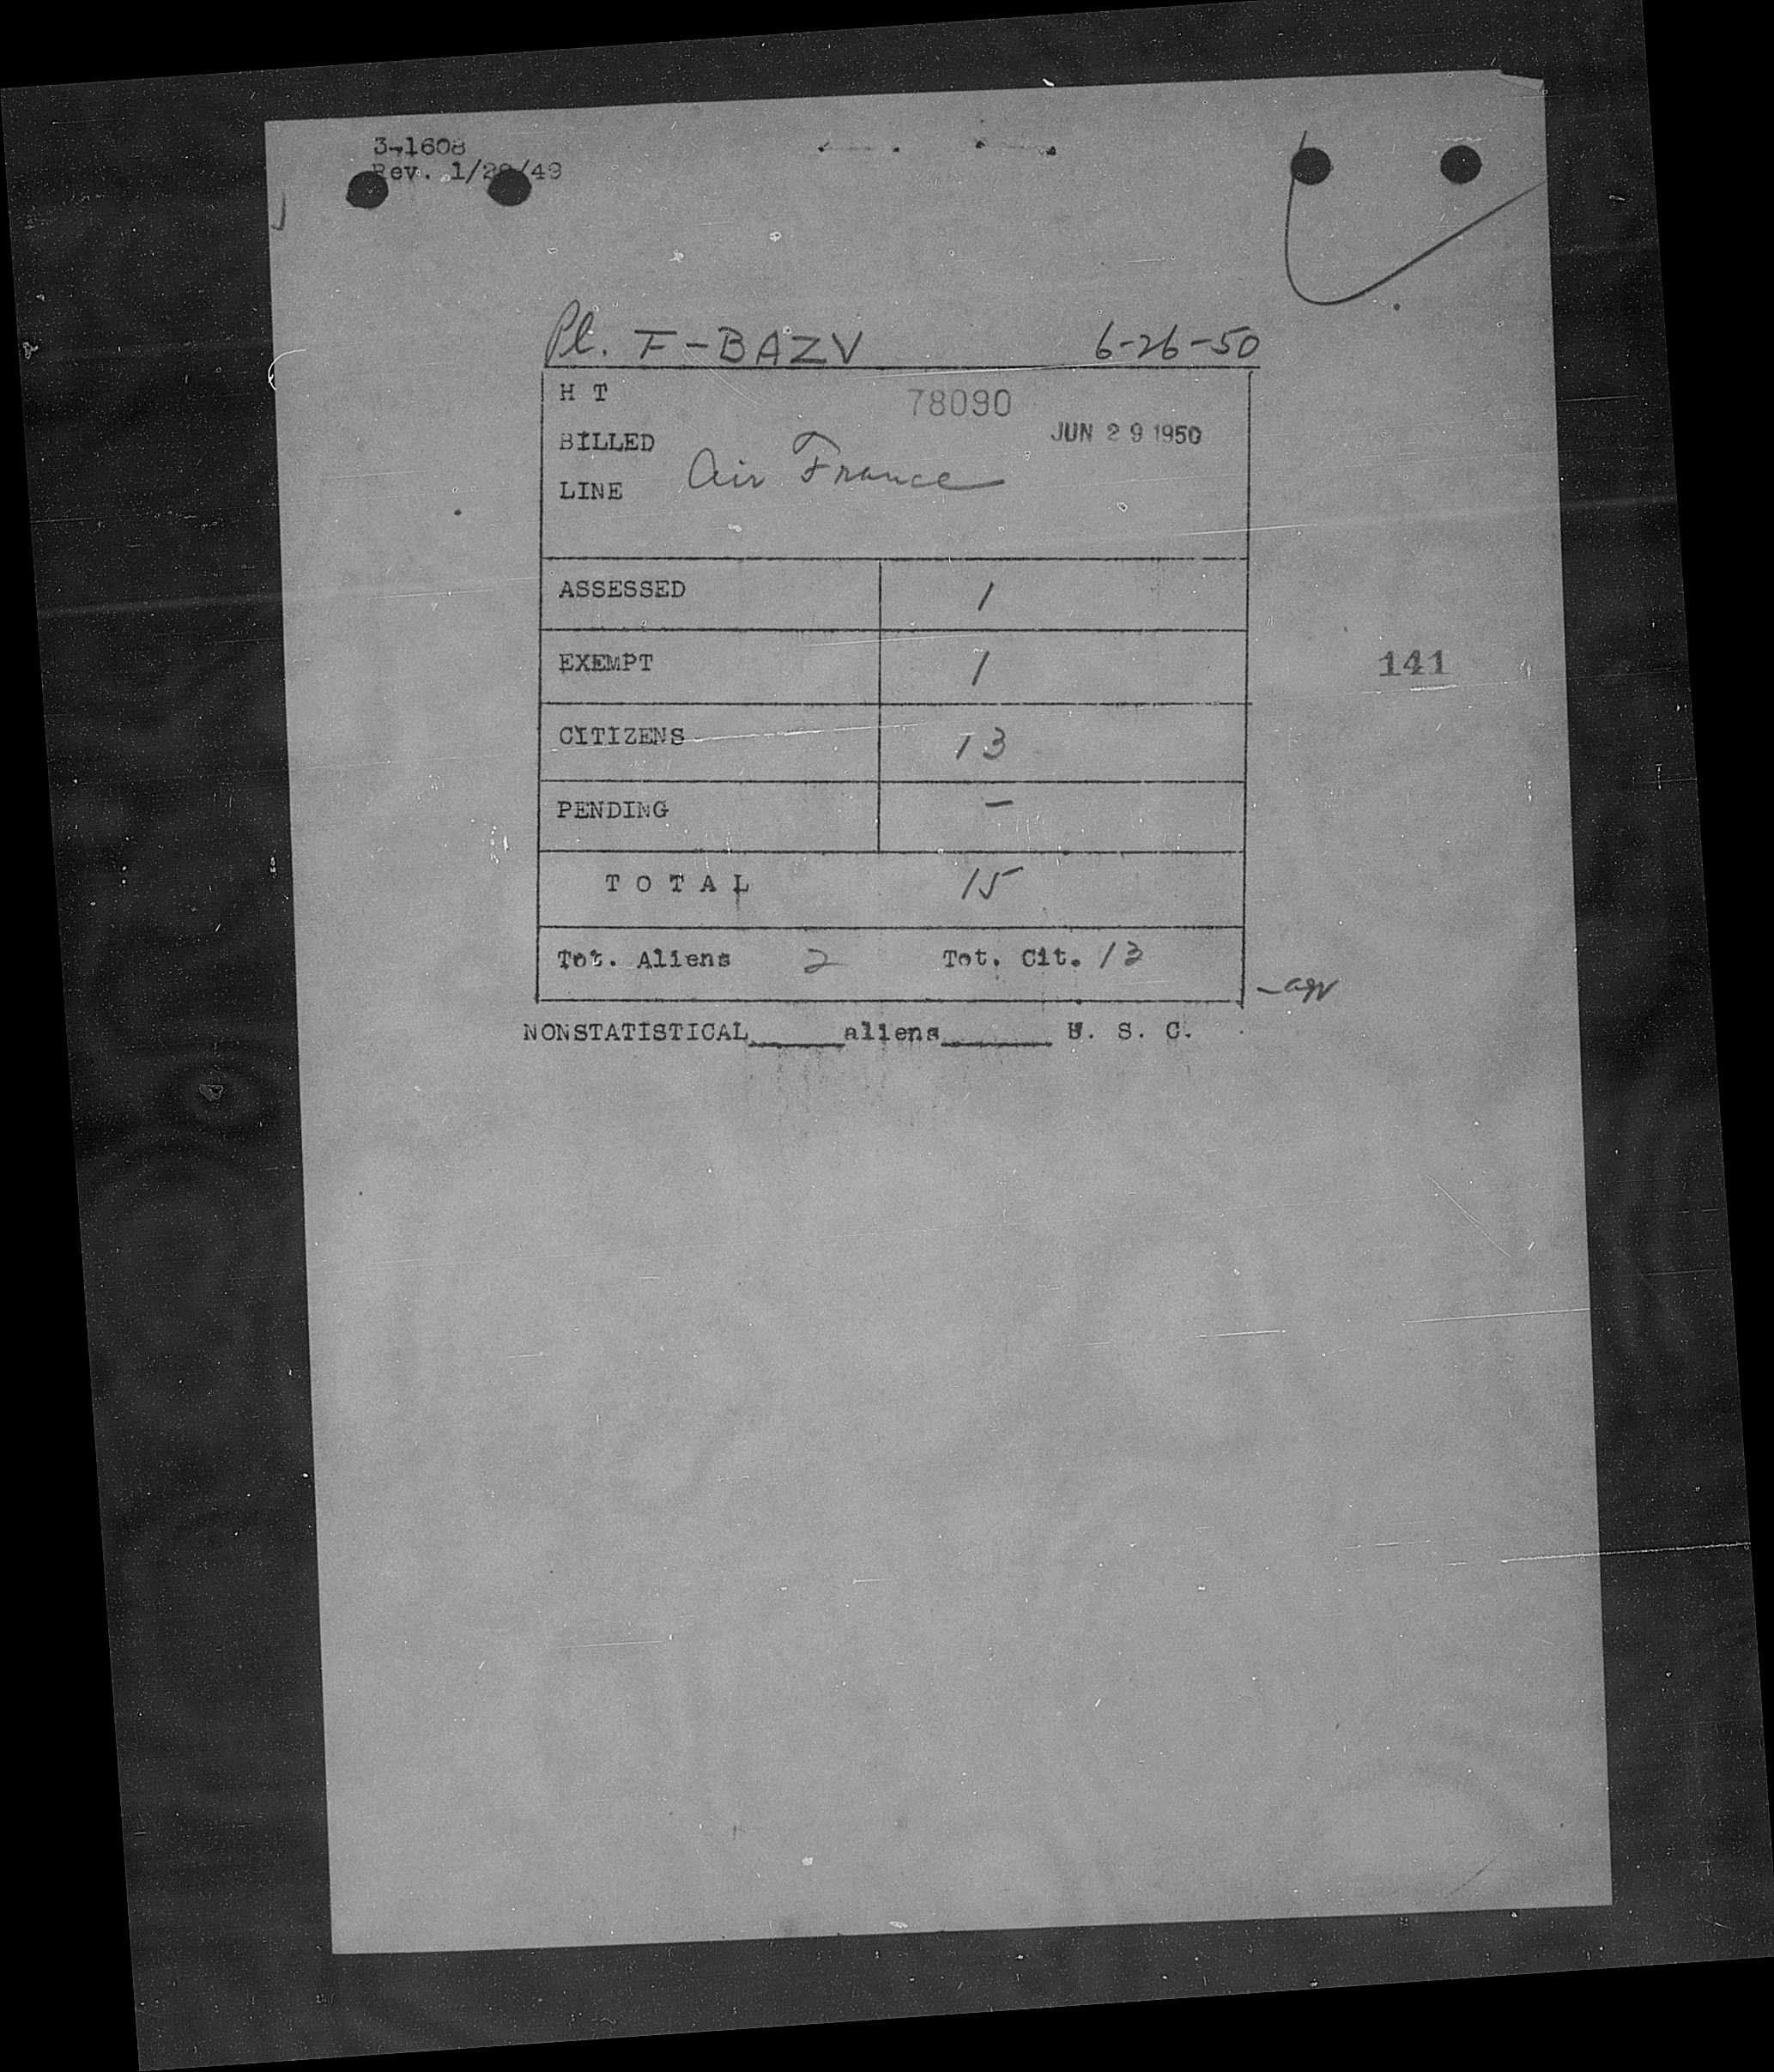 3-1608
Rev. 1/28/49
Pl. F-BAZV 6-26-50
H T 78090
BILLED JUN 29 1950
LINE Air France
ASSESSED 1
EXEMPT 1
141
CITIZENS 13
PENDING -
TOTAL 15
Tot. Aliens 2 Tot. Cit. 13
NONSTATISTICAL_____aliens______ U. S. C.